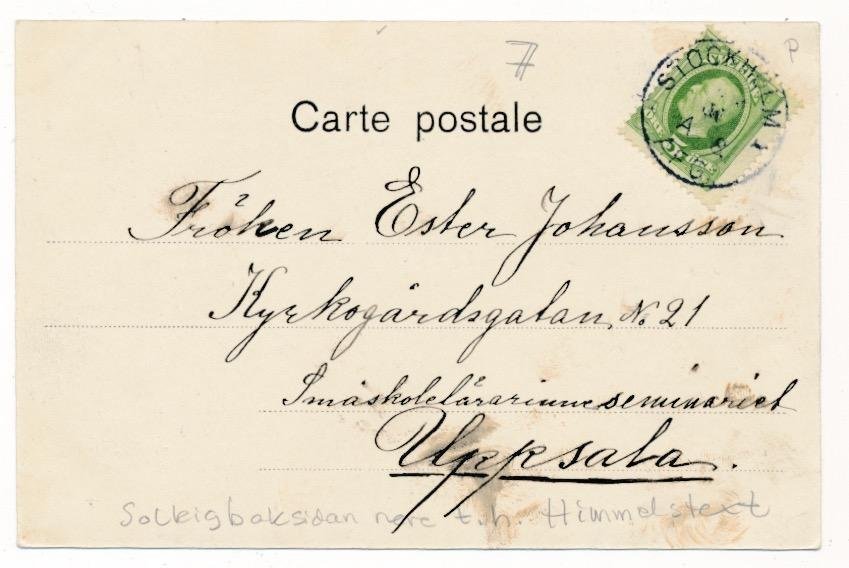 7
P
STOCKHOLM 1
Carte postale
Fröken Ester Johansson
Kyrkogårdsgatan No 21
Småskolelärarinneseminariet
Uppsala.
Solkig baksidan nere t.h. Himmelstext